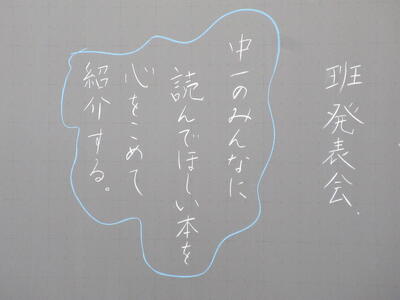 班発表会.
中一のみんなに
読んでほしい本を
心をこめて
紹介する。